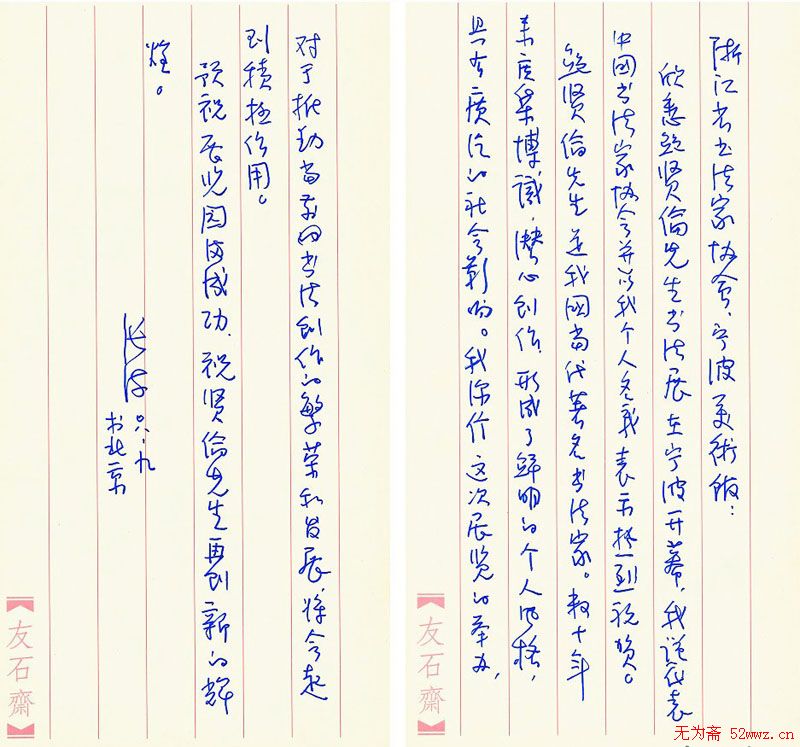 浙江省书法家协会、宁波美術馆：
欣悉鲍贤倫先生书法展在宁波开幕，我谨代表
中國书法家协会并以我个人名義表示热烈祝贺。
鲍贤倫先生是我國当代著名书法家。数十年
来广采博識，潜心创作，形成了鲜明的个人风格，
具有广泛的社会影响。我深信这次展览的举办，
对于推动当前的书法创作的繁荣和发展，将会起
到積极作用。
预祝展览圆满成功，祝贤倫先生再创新的辉
煌。
张海
〇八·九
于北京
友石齋
友石齋
无为斋 52wwz.cn